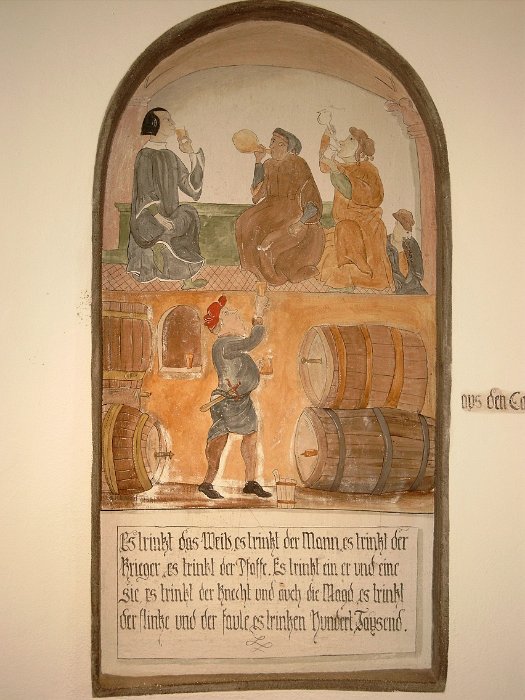 Es trinkt das Weib, es trinkt der Mann, es trinkt der
Krieger, es trinkt der Pfaffe. Es trinkt ein er und eine
sie. Es trinkt der Knecht und auch die Magd, es trinkt
der flinke und der faule, es trinken Hundert, Tausend.
aus den